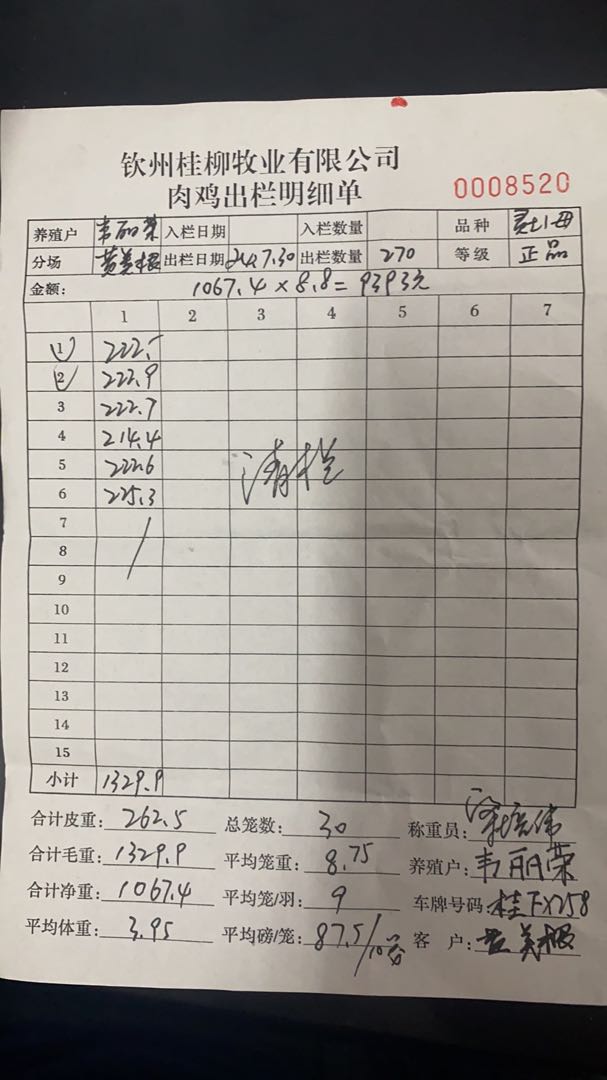 钦州桂柳牧业有限公司
肉鸡出栏明细单
0008520
养殖户 韦丽荣 入栏日期 入栏数量 品种
分场 黄美根 出栏日期 24.7.30 出栏数量 270 等级 正品
金额: 1067.4×8.8=9393元
1 2 3 4 5 6 7
1 222.5
2 222.9
3 222.7
4 214.4
5 222.6
清栏
6 225.3
7
8
9
10
11
12
13
14
15
小计 1329.9
合计皮重: 262.5 总笼数: 30 称重员:
合计毛重: 1329.9 平均笼重: 8.75 养殖户: 韦丽荣
合计净重: 1067.4 平均笼/羽: 9 车牌号码: 桂FX258
平均体重: 3.95 平均磅/笼: 87.5/10 客户: 黄美根